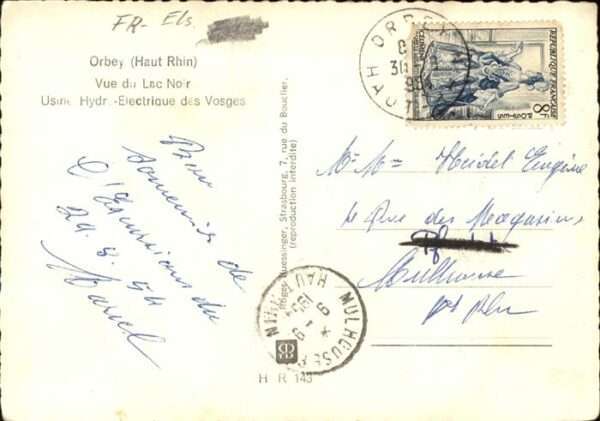 FR- Els
Orbey (Haut Rhin)
Vue du Lac Noir
Usine Hydro-Electrique des Vosges
Bien
souvenir de
L'Excursion du
29. 8. 54
Marcel
Strasbourg, 7, rue du Bouclier.
(reproduction interdite)
H R 143
ORBEY
HAUT
REPUBLIQUE FRANÇAISE
POSTES
8F
Mr Mme Heidet Eugène
Rue des Magasins
Mulhouse
Ht Rhin
MULHOUSE
HAUT RHIN